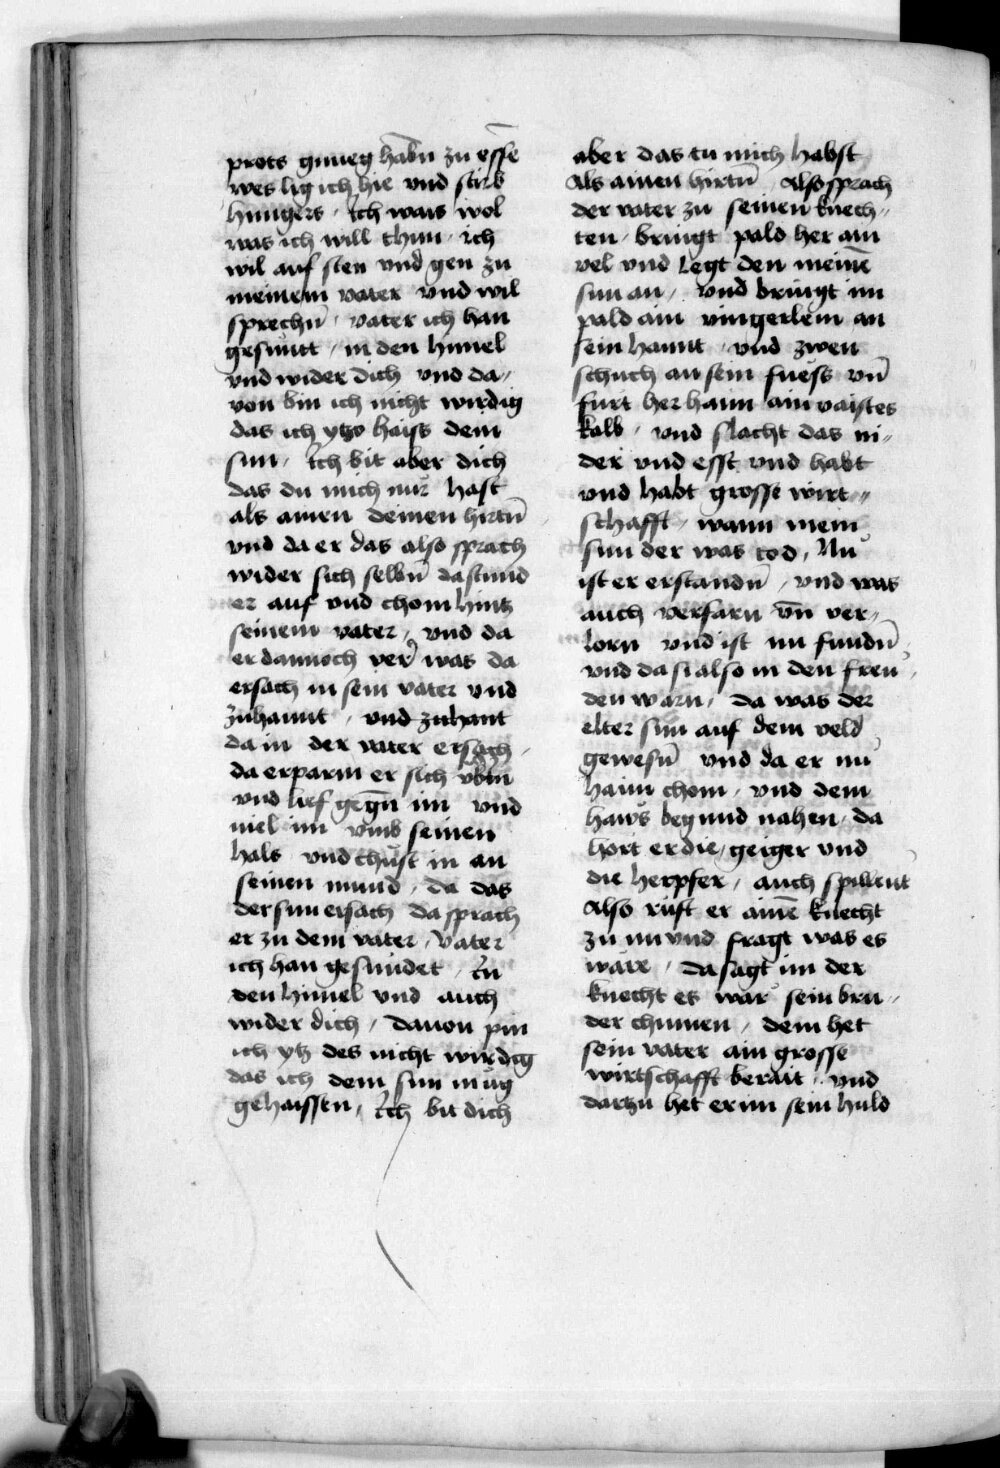 prots gnueg habn̄ zu ess̄e
wes lig ich hie vnd stirb
hungers / Ich wais wol
was ich will thun / ich
wil auf sten vnd gen zu
meinem vater vnd wil
sprechn̄ / vater ich han
gesuntt / in den himel
vnd wider dich vnd da /
von bin ich nicht wirdig
das ich ytzo haiss dein
sun / Ich bit aber dich
das du mich nur hast
als ainen deinen hirtn̄
vnd da er das also sprach
wider sich selbn̄ da stund
er auf vnd chom hintz
seinem vater / vnd da
er dannoch verr was da
ersach in sein vater vnd
zuhannt / vnd zuhant
da in der vater ersach /
da erparm er sich vbn̄
vnd lief gegn̄ im vnd
viel im vmb seinen
hals vnd chust in an
seinen mund / da das
der sun ersach da sprach
er zu dem vater / Vater
ich han gesundet / In
den himel vnd auch
wider dich / dauon pin
ich ytz des nicht wirdig
das ich dein sun mug
gehaissen / Ich bit dich
aber das tu mich habst
Als ainen hirtn̄ Also sprach
der vater zu seinen knech //
ten / bringt pald her ain
vel vnd legt den meinē
sun an / vnd bringt im
pald ain vingerlein an
sein hannt / vnd zwen
schuch an sein fuess vn̄
furt her haim ain vaistes
kalb / vnd slacht das ni //
der vnd esst vnd habt
vnd habt grosse wirt //
schafft / wann mein
sun der was tod / Nu
ist er erstandn̄ / vnd was
auch verfarn vn̄ ver /
lorn vnd ist nu fundn̄
vnd da si also in den freu
den warn / da was der
elter sun auf dem veld
gewesn̄ vnd da er nu
haim chom / vnd dem
haws begund nahen / da
hort er die / geiger vnd
die herpfer / auch spillent
Also ruft er ainē knecht
zu im vnd fragt was es
ware / da sagt im der
knecht es war sein bru /
der chumen / dem het
sein vater ain grosse
wirtschafft berait / vnd
dartzu het er im sein huld